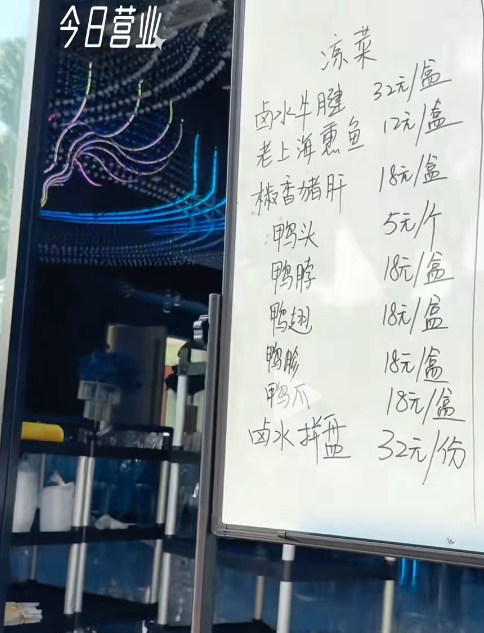 今日营业
凉菜
卤水牛腱 32元/盒
老上海熏鱼 12元/盒
椒香猪肝 18元/盒
鸭头 5元/个
鸭脖 18元/盒
鸭翅 18元/盒
鸭胗 18元/盒
鸭爪 18元/盒
卤水拼盘 32元/份